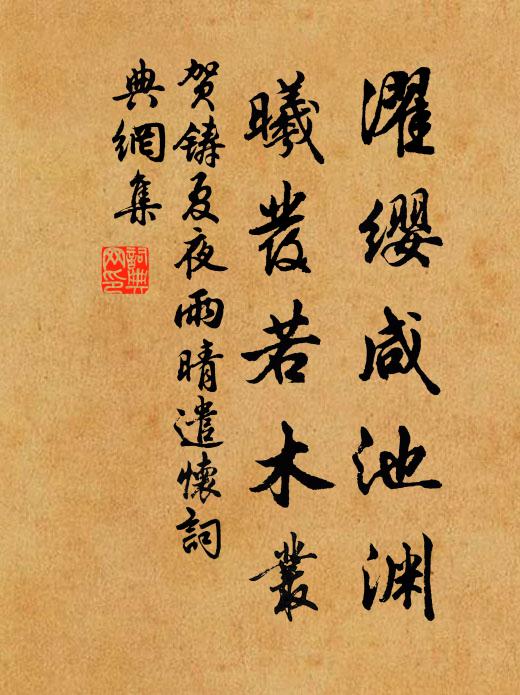 濯缨咸池渊
曦发若木丛
贺铸夏夜雨晴遣怀词
典網集
詞典
网印